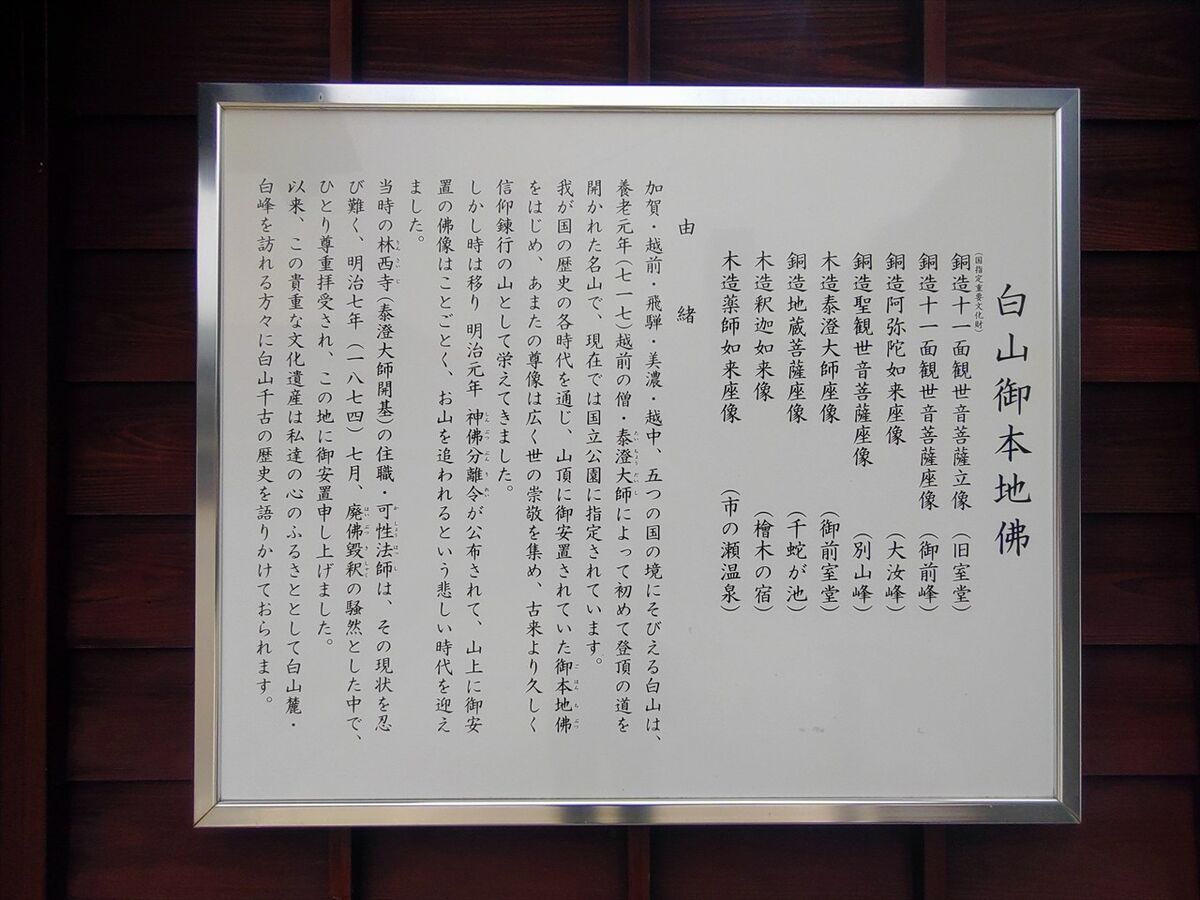 白山御本地佛
（国指定重要文化財）
銅造十一面観世音菩薩立像（旧室堂）
銅造十一面観世音菩薩座像（御前峰）
銅造阿弥陀如来座像（大汝峰）
銅造聖観世音菩薩座像（別山峰）
木造泰澄大師座像（御前室堂）
銅造地蔵菩薩座像（千蛇が池）
木造釈迦如来像（檜木の宿）
木造薬師如来座像（市の瀬温泉）
由緒
加賀・越前・飛騨・美濃・越中、五つの国の境にそびえる白山は、
養老元年（七一七）越前の僧・泰澄大師によって初めて登頂の道を
開かれた名山で、現在では国立公園に指定されています。
我が国の歴史の各時代を通じ、山頂に御安置されていた御本地佛
をはじめ、あまたの尊像は広く世の崇敬を集め、古来より久しく
信仰錬行の山として栄えてきました。
しかし時は移り 明治元年 神佛分離令が公布されて、山上に御安
置の佛像はことごとく、お山を追われるという悲しい時代を迎え
ました。
当時の林西寺（泰澄大師開基）の住職・可性法師は、その現状を忍
び難く、明治七年（一八七四）七月、廃佛毀釈の騒然とした中で、
ひとり尊重拝受され、この地に御安置申し上げました。
以来、この貴重な文化遺産は私達の心のふるさととして白山麓・
白峰を訪れる方々に白山千古の歴史を語りかけておられます。